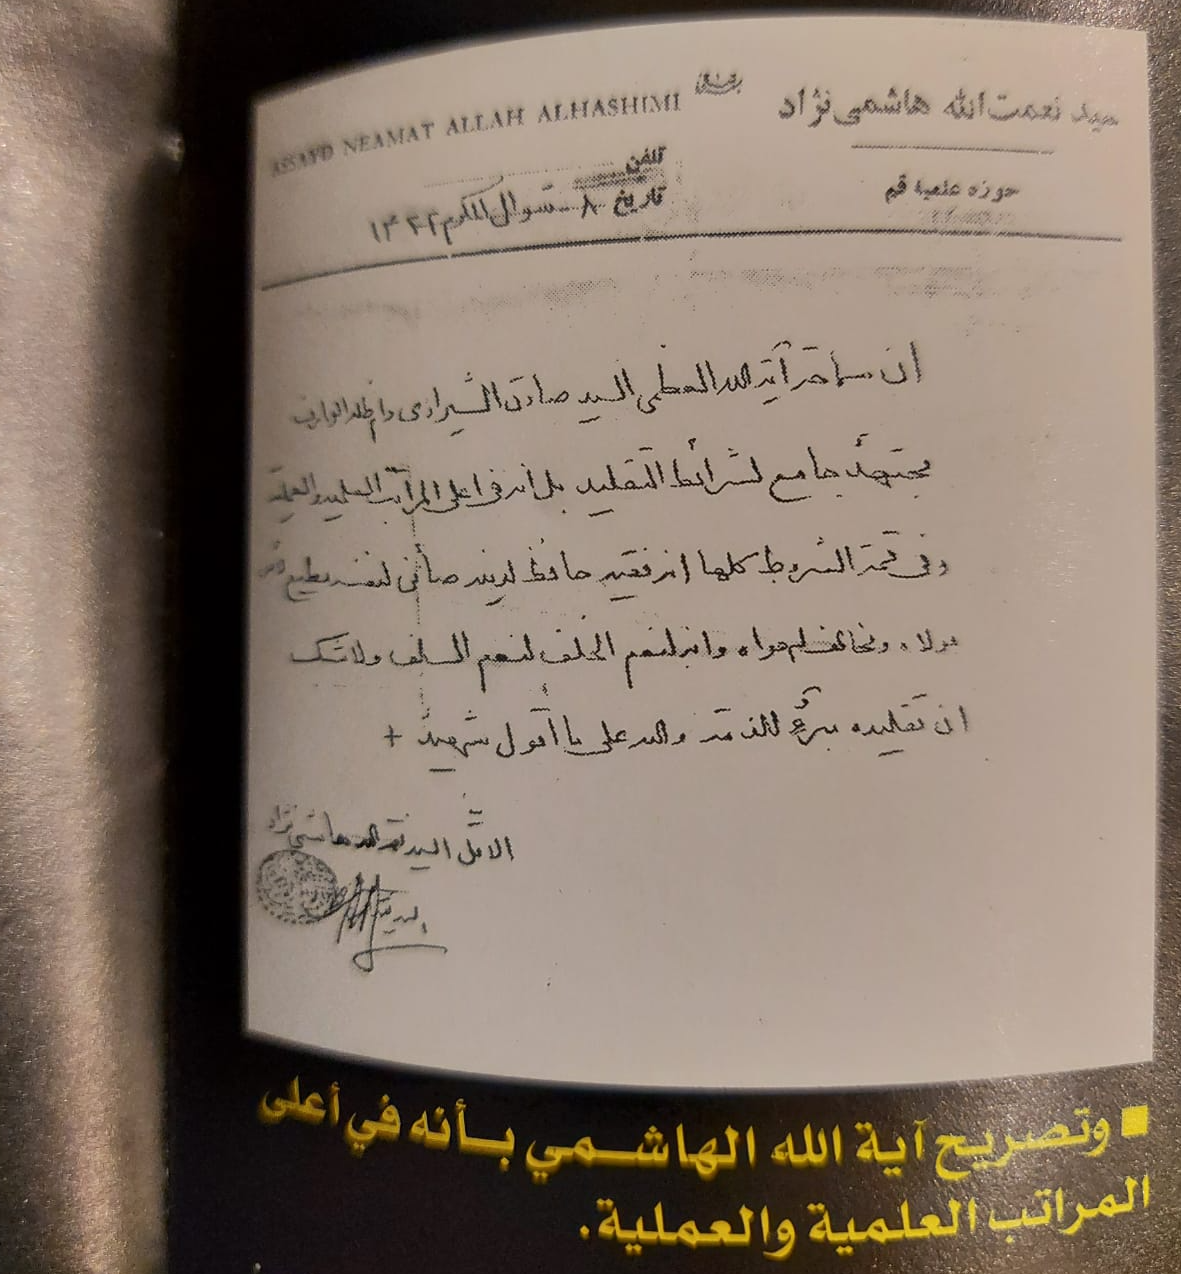 سيد نعمت الله هاشمی نژاد
ASSAYD NEAMAT ALLAH ALHASHIMI
حوزه علمية قم
تلفن
تاريخ ٨ - شوال المكرم ١٤٢٢
ان سماحة آية الله العظمى السيد صادق الشيرازى دام ظله الوارف
مجتهدٌ جامع لشرائط التقليد بل انه فى اعلى المراتب العلمية والعملية
وفى قمة الشروط كلها انه فقيه حافظ لدينه صائن لنفسه مطيع
مولاه ومخالف لهواه وانه لنعم الخلف لنعم السلف ولا شك
ان تقليده مبرءٌ للذمة والله على ما أقول شهيدٌ +
الاقل السيد نعمة الله هاشمى نژاد
■ وتصريح آية الله الهاشمي بأنه في أعلى
المراتب العلمية والعملية.